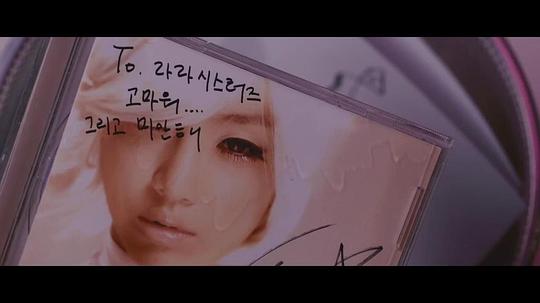 To. 라라시스터즈
고마워....
그리고 미안해